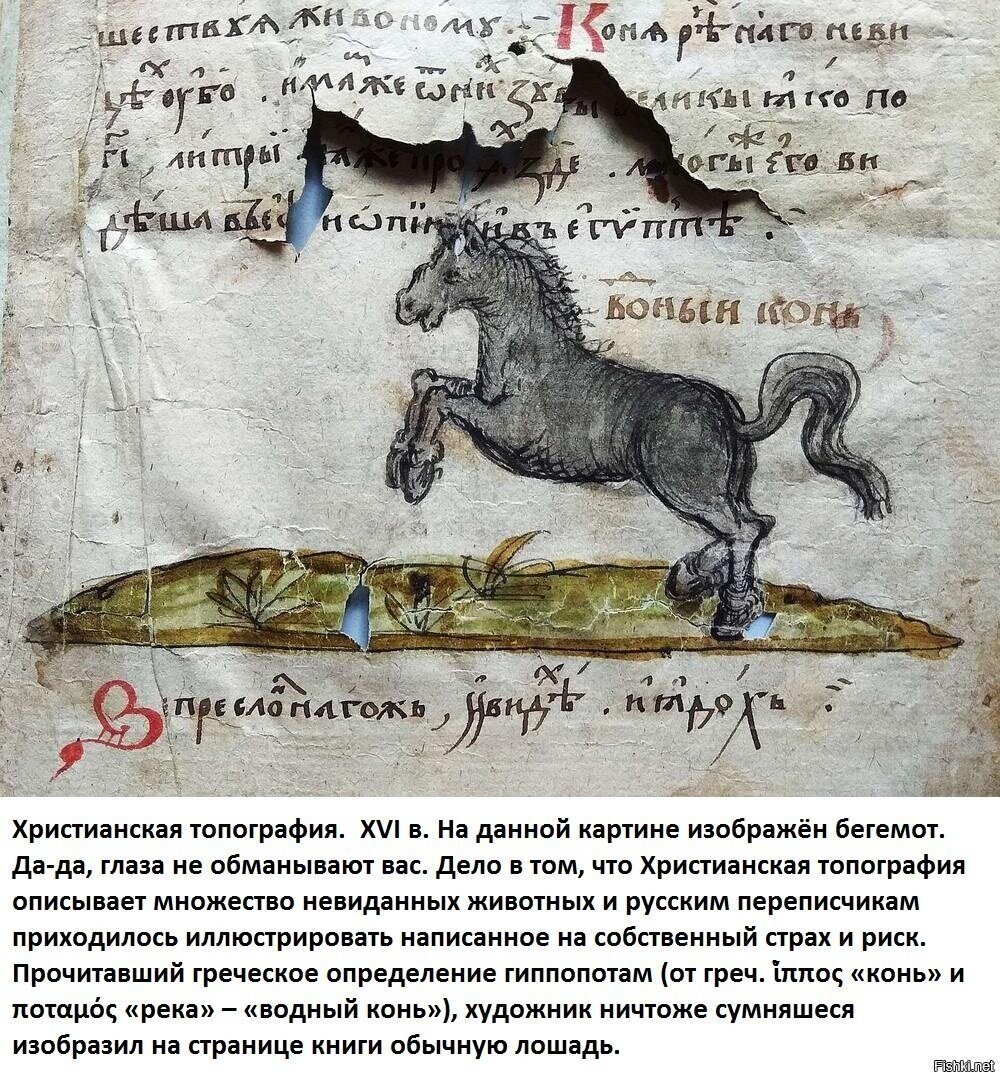 живоному . Конѧ рѣчнаго неви
дѣх оубо . имаже ѿ них зꙋбы великы ꙗко по
гі литры про . многы его ви
дѣша и въ егѵптѣ .
воныи конь
Вепреслонагожь , ꙋвидѣх . и ꙗдохъ
Христианская топография. XVI в. На данной картине изображён бегемот.
Да-да, глаза не обманывают вас. Дело в том, что Христианская топография
описывает множество невиданных животных и русским переписчикам
приходилось иллюстрировать написанное на собственный страх и риск.
Прочитавший греческое определение гиппопотам (от греч. ἵππος «конь» и
ποταμός «река» – «водный конь»), художник ничтоже сумняшеся
изобразил на странице книги обычную лошадь.
Fishki.net